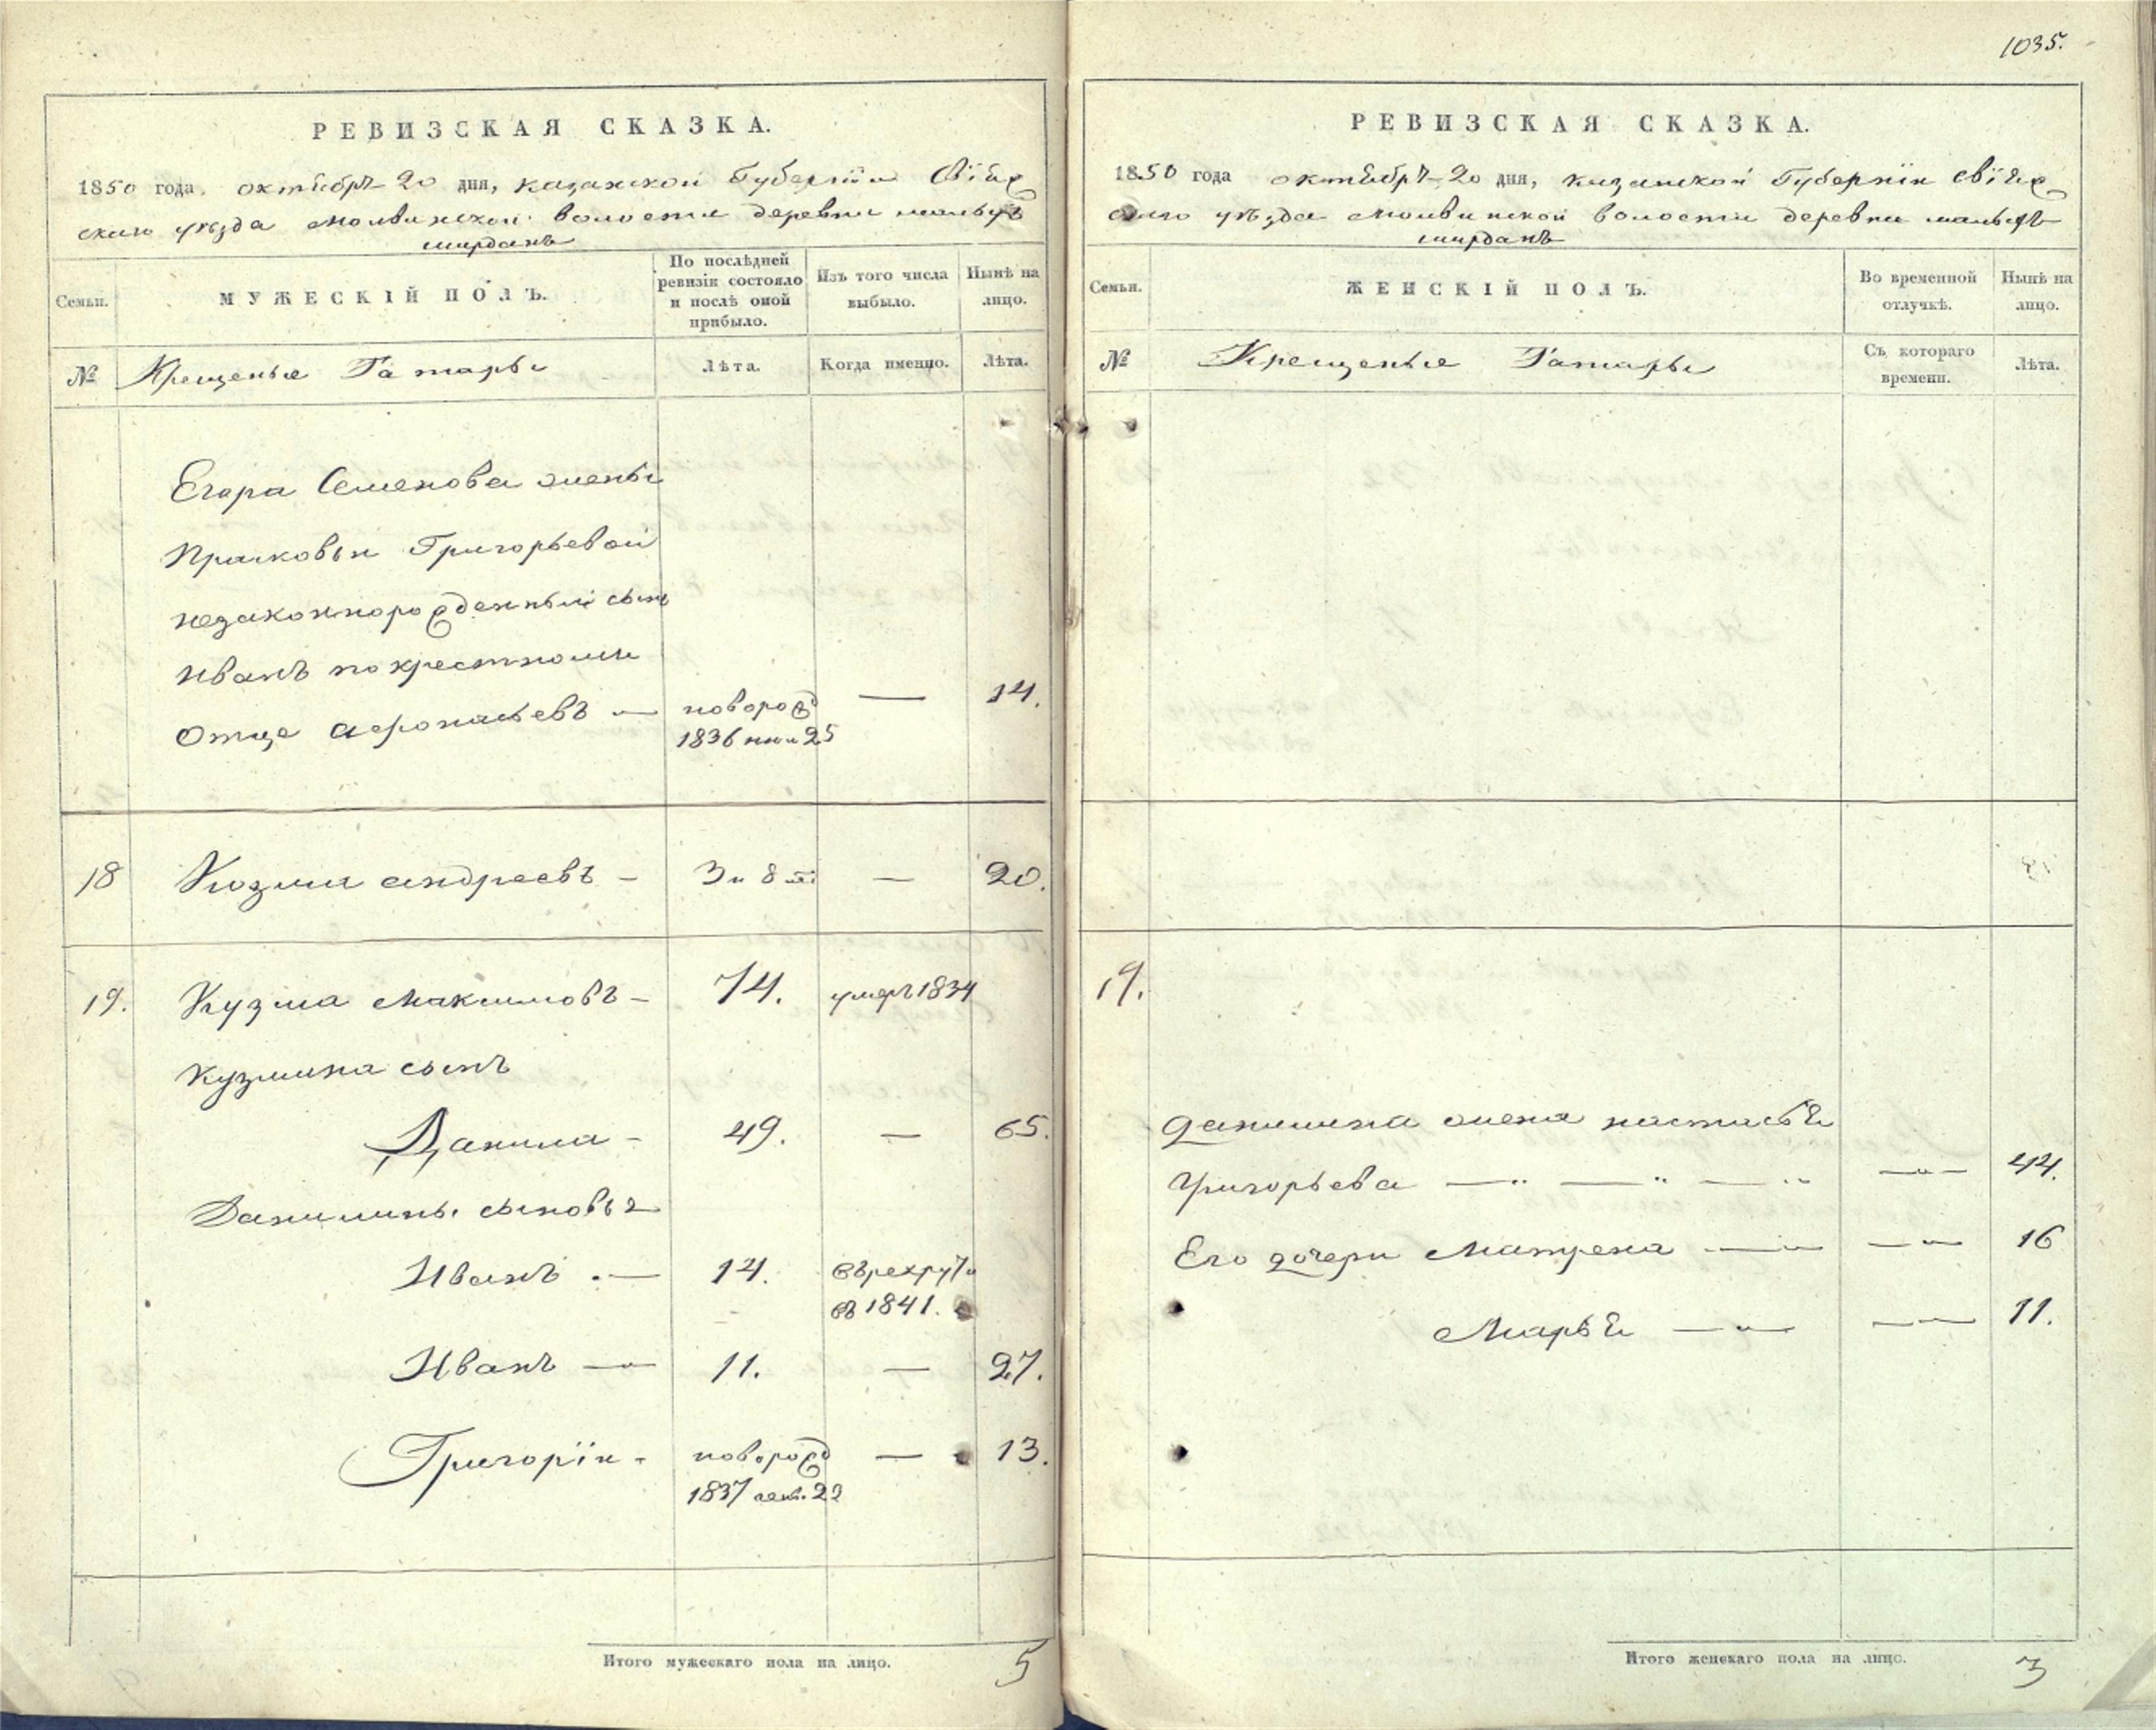 1035.
РЕВИЗСКАЯ СКАЗКА.
1850 года октября 20 дня, казанской Губерніи Свіяж
скаго уѣзда Молвинской волости деревни малыхъ
ширданъ
Семьи.
МУЖЕСКІЙ ПОЛЪ.
По послѣдней ревизіи состояло и послѣ оной прибыло.
Изъ того числа выбыло.
Нынѣ на лицо.
№
Крещеные Татары
Лѣта.
Когда именно.
Лѣта.
Егора Семенова жены
Прасковьи Григорьевой
незаконнорожденный сынъ
Иванъ по крестному
Отце Афонасьевъ — новорож — 14.
1836 25
18 Козма андреевъ - 3 и 8 — 20.
19. Кузма Максимовъ - 74. умеръ 1834
Кузмина сынъ
Данила - 49. — 65.
Данилины сыновья
Иванъ — 14. въ рекруты
въ 1841.
Иванъ — 11. — 27.
Григорій - новорож — 13.
1837 22
Итого мужескаго пола на лицо. 5
РЕВИЗСКАЯ СКАЗКА.
1850 года октября 20 дня, казанской Губерніи Свіяж
скаго уѣзда Молвинской волости деревни малыхъ
ширданъ
Семьи.
ЖЕНСКІЙ ПОЛЪ.
Во временной отлучкѣ.
Нынѣ на лицо.
№
Крещеные Татары
Съ котораго времени.
Лѣта.
19.
Данилина жена настасья
Григорьева — 44.
Его дочери Матрена — 16
Марья — 11.
Итого женскаго пола на лицо. 3